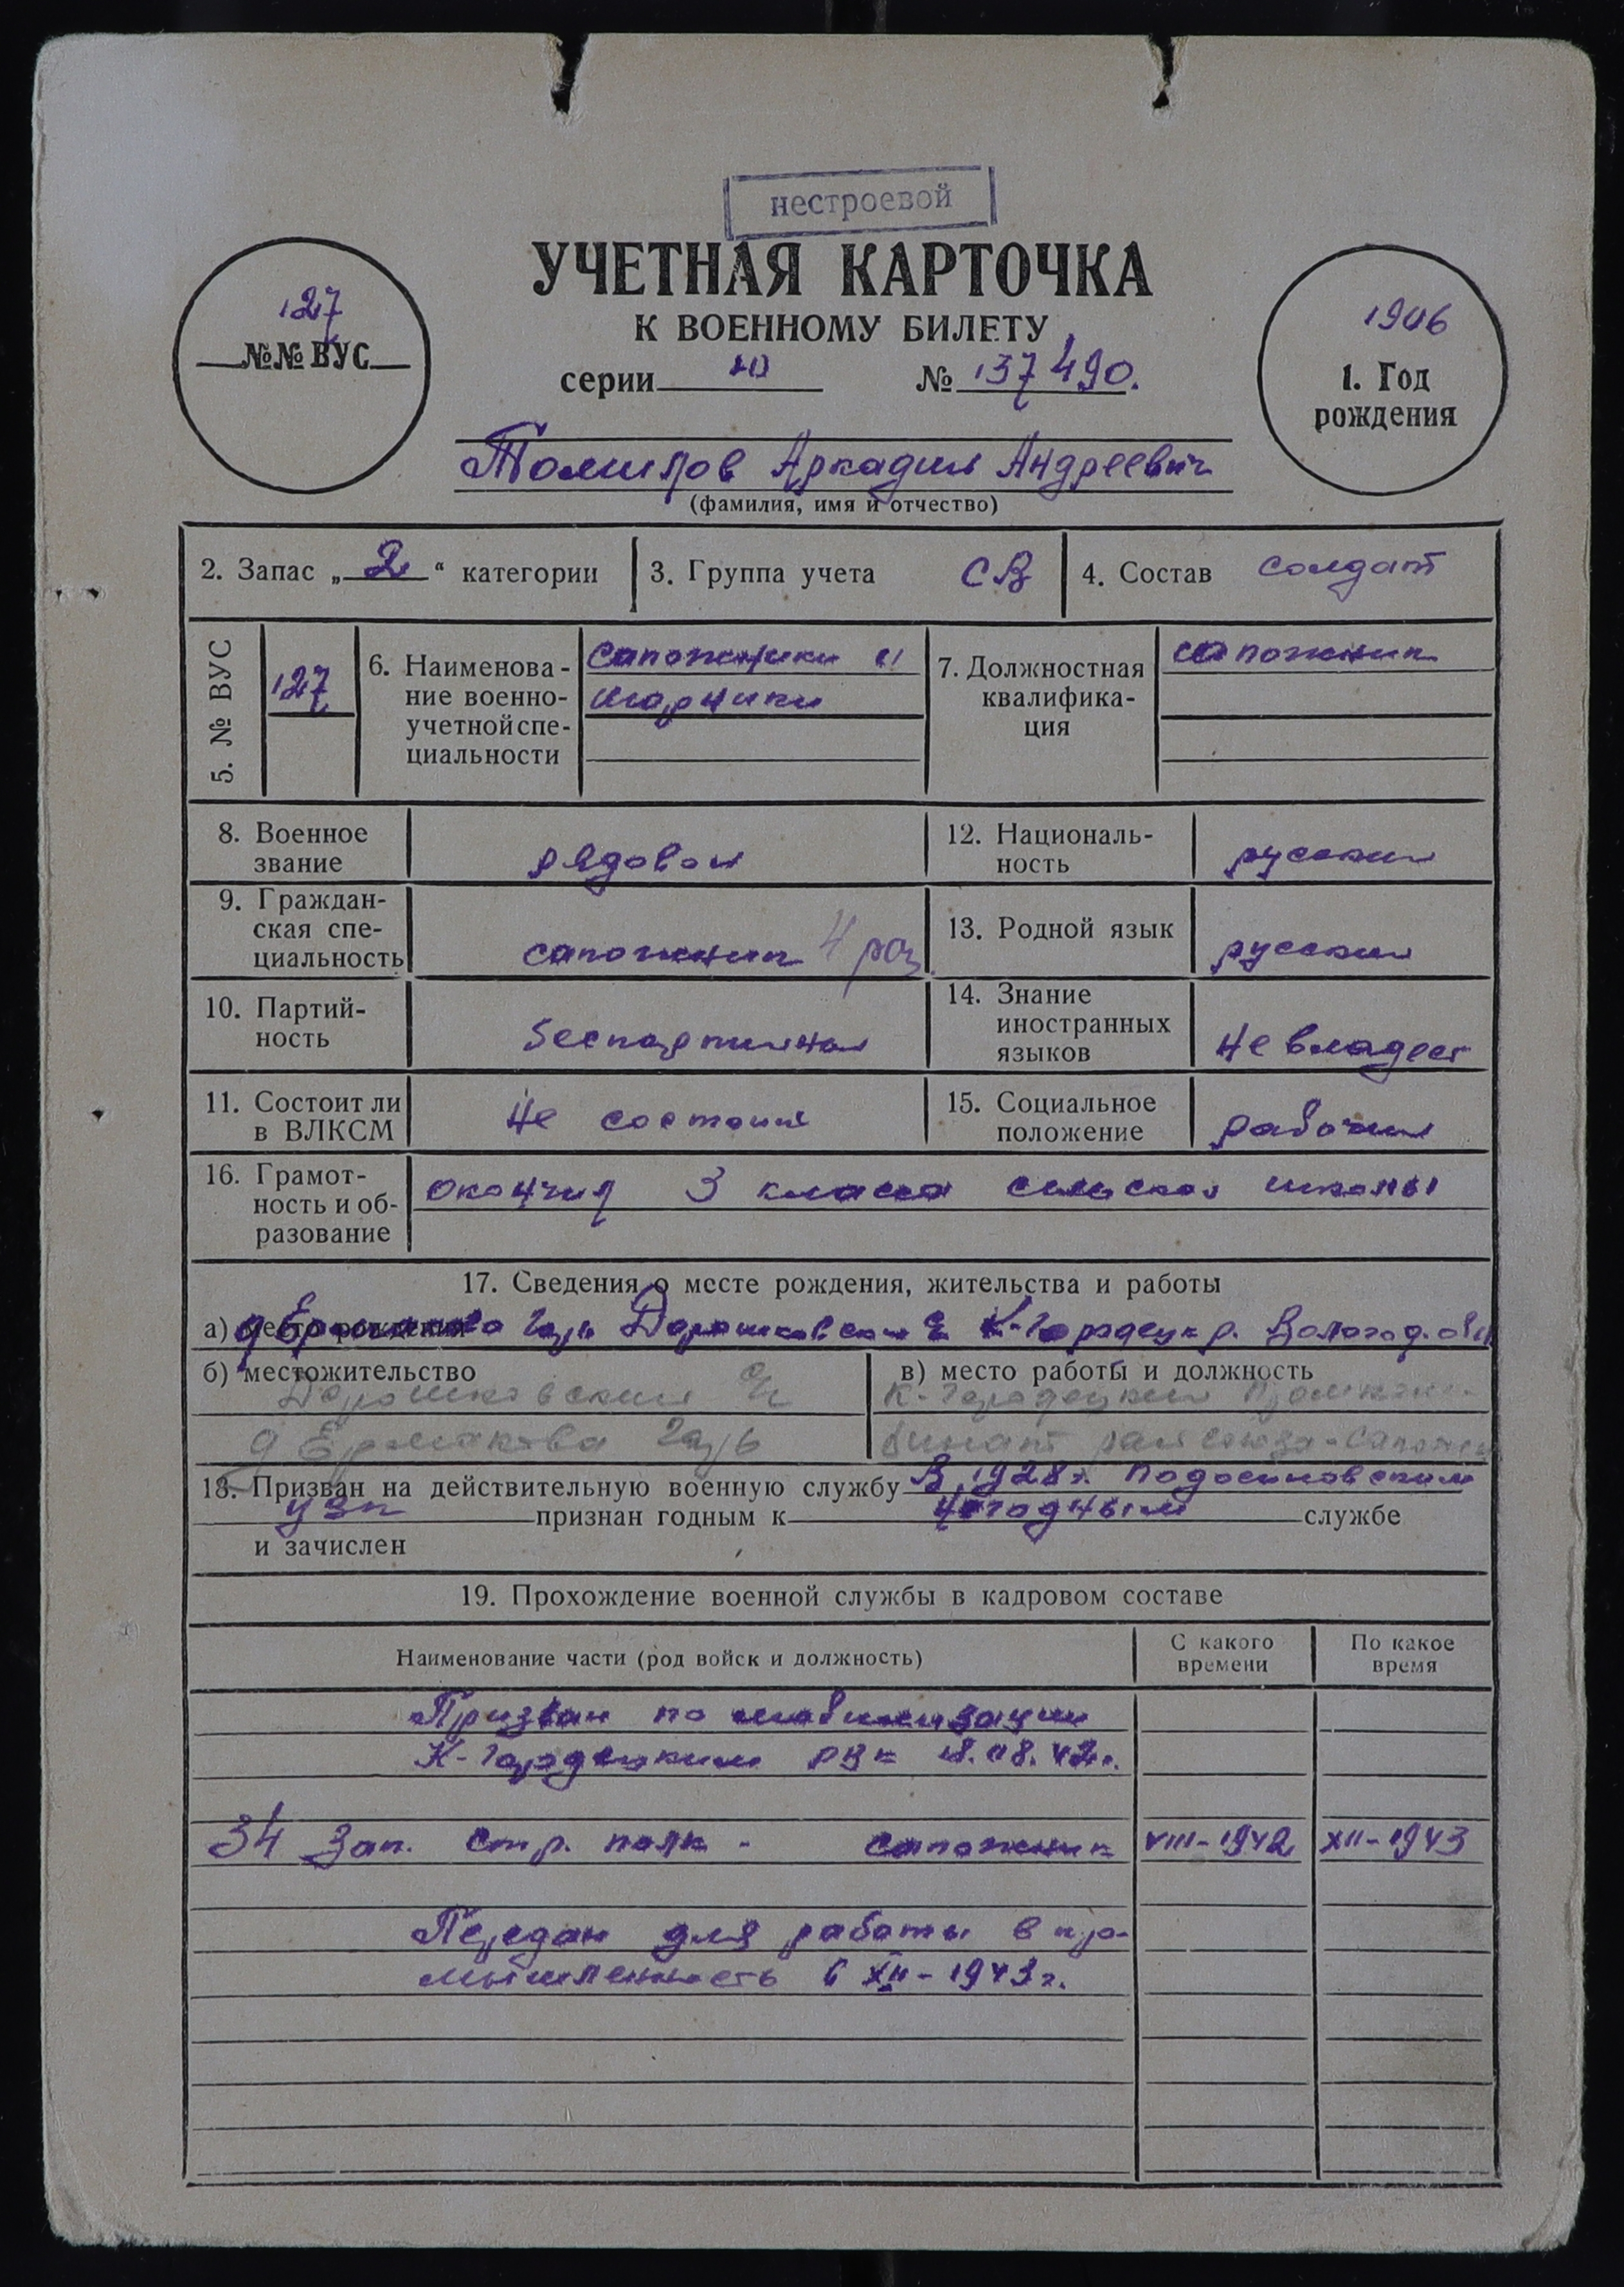 нестроевой
127
№№ ВУС
УЧЕТНАЯ КАРТОЧКА
К ВОЕННОМУ БИЛЕТУ
серии № 137490.
1906
1. Год
рождения
Томилов Аркадий Андреевич
(фамилия, имя и отчество)
2. Запас „ 2 “ категории
3. Группа учета СВ
4. Состав солдат
5. № ВУС 127
6. Наименова-
ние военно-
учетной спе-
циальности
сапожники и
шорники
7. Должностная
квалифика-
ция
сапожник
8. Военное
звание
рядовой
12. Националь-
ность
русский
9. Граждан-
ская спе-
циальность
сапожник 4 раз
13. Родной язык
русский
10. Партий-
ность
беспартийный
14. Знание
иностранных
языков
не владеет
11. Состоит ли
в ВЛКСМ
не состоит
15. Социальное
положение
рабочий
16. Грамот-
ность и об-
разование
окончил 3 класса сельской школы
17. Сведения о месте рождения, жительства и работы
а) место рождения д Ермакова Гарь К-Городецк р. Вологод. обл
б) местожительство
д Ермакова Гарь
в) место работы и должность
К-Городецкий Промком-
бинат райсоюза-сапожник
18. Призван на действительную военную службу В 1928 г. Подосиновским
УВК признан годным к негодным службе
и зачислен
19. Прохождение военной службы в кадровом составе
Наименование части (род войск и должность)
С какого
времени
По какое
время
Призван по мобилизации
К-Городецким РВК 18.08.42г.
34 Зап. стр. полк - сапожник VIII-1942 XII-1943
Передан для работы в про-
мышленность 6 XII-1943г.